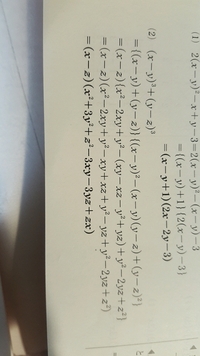 (1) 2(x−y)²−x+y−3=2(x−y)²−(x−y)−3
={(x−y)+1}{2(x−y)−3}
=(x−y+1)(2x−2y−3)
(2) (x−y)³+(y−z)³
={(x−y)+(y−z)}{(x−y)²−(x−y)(y−z)+(y−z)²}
=(x−z){x²−2xy+y²−(xy−xz−y²+yz)+y²−2yz+z²}
=(x−z)(x²−2xy+y²−xy+xz+y²−yz+y²−2yz+z²)
=(x−z)(x²+3y²+z²−3xy−3yz+zx)